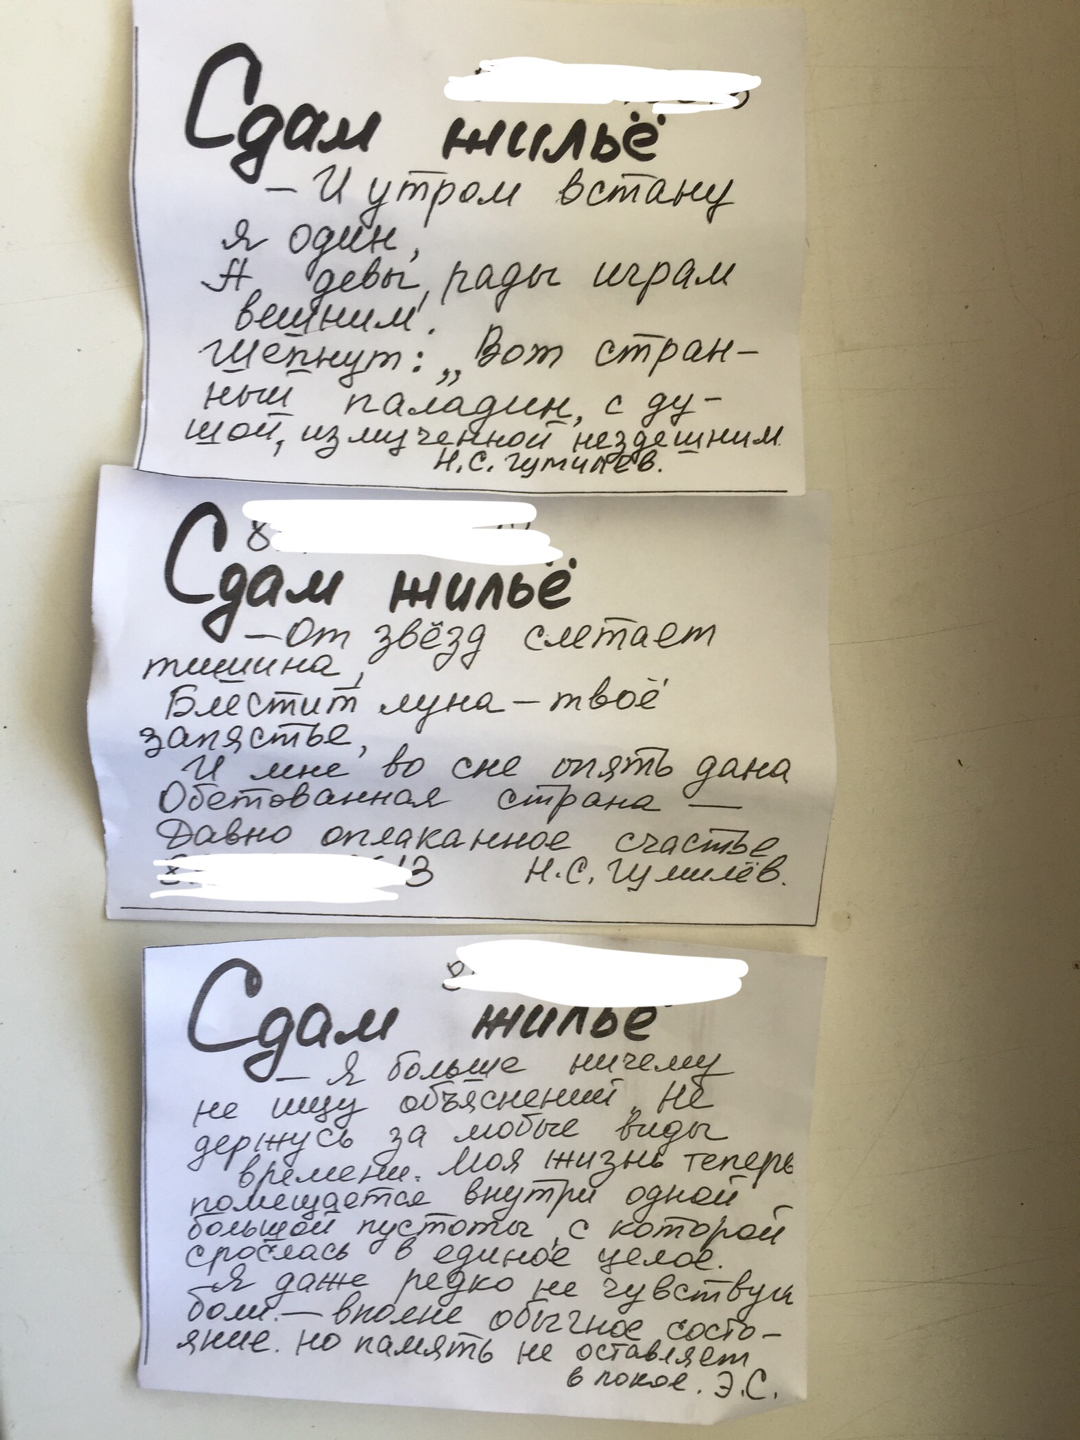 Сдам жильё
— И утром встану
Я один,
А девы, рады играм
вешним.
Шепнут: „Вот стран-
ный паладин, с ду-
шой, измученной нездешним
Н.С. Гумилёв.
8
Сдам жильё
— От звёзд слетает
тишина,
Блестит луна — твоё
запястье,
И мне во сне опять дана
Обетованная страна —
Давно оплаканное счастье
8 3 Н.С. Гумилёв.
8
Сдам жильё
— Я больше ничему
не ищу объяснений, Не
держусь за любые виды
времени. Моя жизнь теперь
помещается внутри одной
большой пустоты, с которой
срослась в единое целое.
Я даже редко не чувствую
боли. — вполне обычное состо-
яние. но память не оставляет
в покое. Э.С.